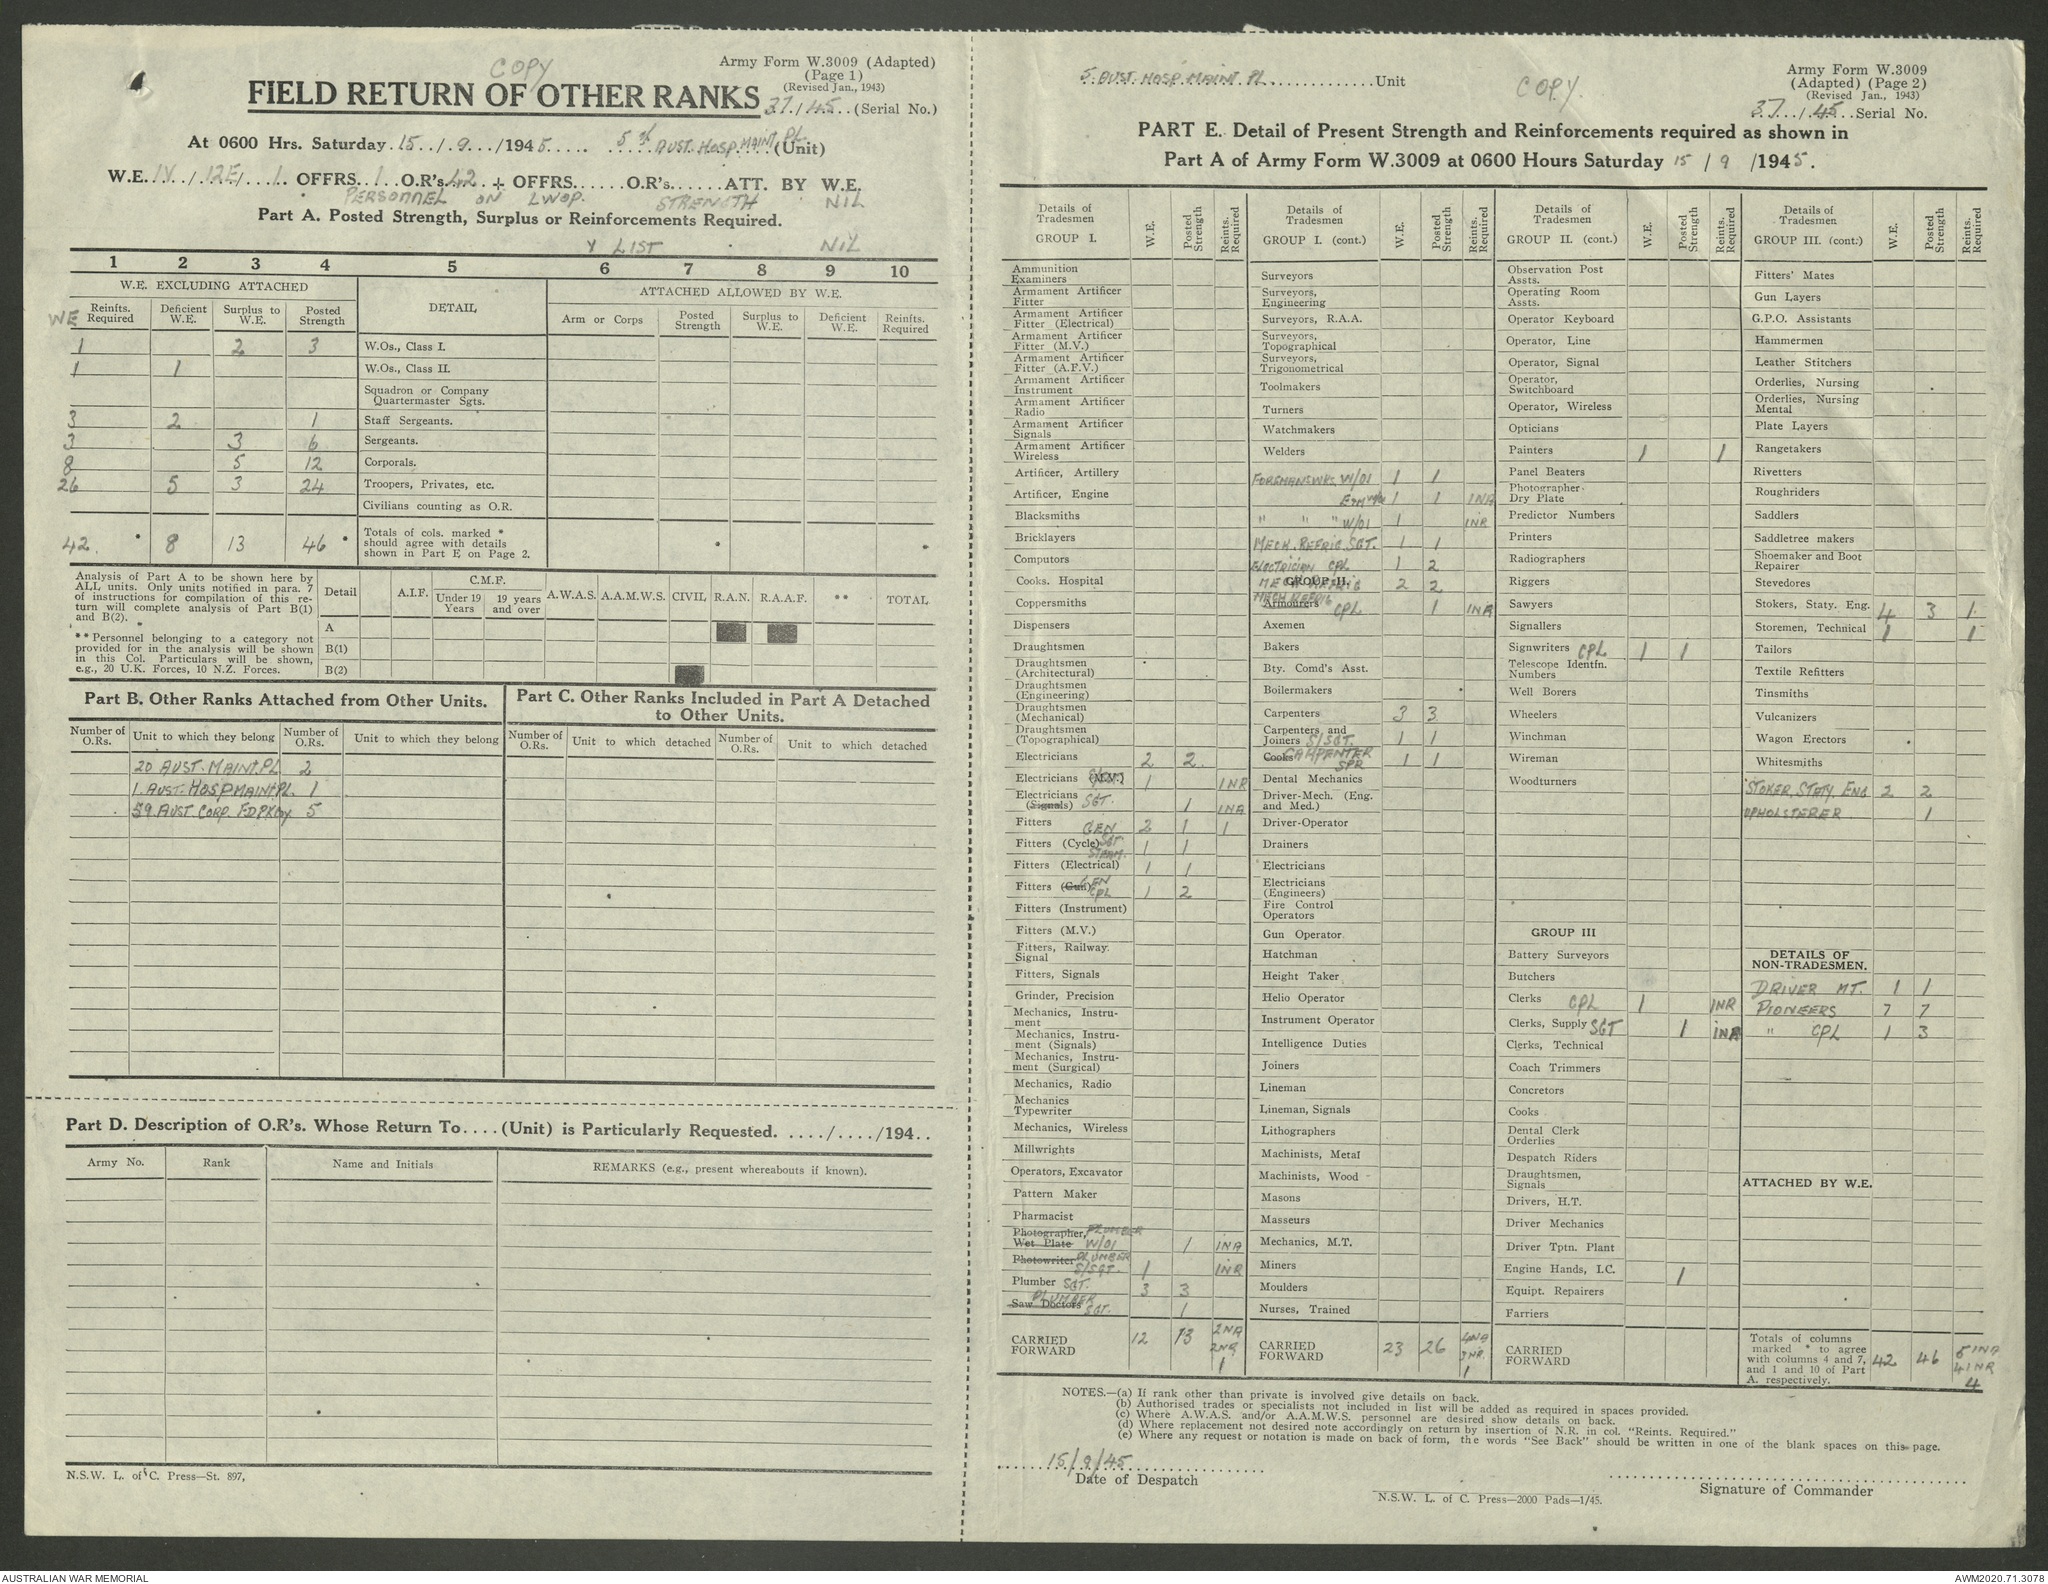 COPY
Army Form W.3009 (Adapted)
(Page 1)
(Revised Jan., 1943)
FIELD RETURN OF OTHER RANKS 37/45 (Serial No.)
At 0600 Hrs. Saturday 15/9/1945 5th AUST. HOSP. MAINT PL (Unit)
W.E. IV/12E/1 OFFRS. 1 O.R's 42 + OFFRS...... O.R's...... ATT. BY W.E.
PERSONNEL ON LWOP. STRENGTH NIL
Part A. Posted Strength, Surplus or Reinforcements Required.
Y LIST NIL
1 2 3 4 5 6 7 8 9 10
W.E. EXCLUDING ATTACHED DETAIL ATTACHED ALLOWED BY W.E.
WE Reinfts. Required Deficient W.E. Surplus to W.E. Posted Strength Arm or Corps Posted Strength Surplus to W.E. Deficient W.E. Reinfts. Required
1 2 3 W.Os., Class I.
1 1 W.Os., Class II.
Squadron or Company Quartermaster Sgts.
3 2 1 Staff Sergeants.
3 3 6 Sergeants.
8 5 12 Corporals.
26 5 3 24 Troopers, Privates, etc.
Civilians counting as O.R.
42 * 8 13 46 * Totals of cols. marked * should agree with details shown in Part E on Page 2. * *
Analysis of Part A to be shown here by
ALL units. Only units notified in para. 7
of instructions for compilation of this re-
turn will complete analysis of Part B(1)
and B(2).
** Personnel belonging to a category not
provided for in the analysis will be shown
in this Col. Particulars will be shown,
e.g., 20 U.K. Forces, 10 N.Z. Forces.
Detail A.I.F. C.M.F. Under 19 Years 19 years and over A.W.A.S. A.A.M.W.S. CIVIL R.A.N. R.A.A.F. ** TOTAL
A
B(1)
B(2)
Part B. Other Ranks Attached from Other Units.
Number of O.Rs. Unit to which they belong Number of O.Rs. Unit to which they belong
20 AUST. MAINT. PL 2
1. AUST. HOSP MAINT PL. 1
59 AUST. CORP. FD PK Coy. 5
Part C. Other Ranks Included in Part A Detached to Other Units.
Number of O.Rs. Unit to which detached Number of O.Rs. Unit to which detached
Part D. Description of O.R's. Whose Return To....(Unit) is Particularly Requested. ..../..../194..
Army No. Rank Name and Initials REMARKS (e.g., present whereabouts if known).
N.S.W. L. of C. Press—St. 897,
5. AUST. HOSP. MAINT. PL. Unit
COPY.
Army Form W.3009
(Adapted) (Page 2)
(Revised Jan., 1943)
37/45 Serial No.
PART E. Detail of Present Strength and Reinforcements required as shown in
Part A of Army Form W.3009 at 0600 Hours Saturday 15/9/1945.
Details of Tradesmen GROUP I. W.E. Posted Strength Reinfts. Required
Ammunition Examiners
Armament Artificer Fitter
Armament Artificer Fitter (Electrical)
Armament Artificer Fitter (M.V.)
Armament Artificer Fitter (A.F.V.)
Armament Artificer Instrument
Armament Artificer Radio
Armament Artificer Signals
Armament Artificer Wireless
Artificer, Artillery
Artificer, Engine
Blacksmiths
Bricklayers
Computors
Cooks. Hospital
Coppersmiths
Dispensers
Draughtsmen
Draughtsmen (Architectural)
Draughtsmen (Engineering)
Draughtsmen (Mechanical)
Draughtsmen (Topographical)
Electricians 2 2
Electricians (M.V.) 1 1NR
Electricians (Signals) SGT. 1 1NA
Fitters GEN 2 1 1
Fitters (Cycle) SGT 1 1
Fitters (Electrical) 1 1
Fitters (Gun) GEN CPL 1 2
Fitters (Instrument)
Fitters (M.V.)
Fitters, Railway Signal
Fitters, Signals
Grinder, Precision
Mechanics, Instrument
Mechanics, Instrument (Signals)
Mechanics, Instrument (Surgical)
Mechanics, Radio
Mechanics Typewriter
Mechanics, Wireless
Millwrights
Operators, Excavator
Pattern Maker
Pharmacist
Photographer, Wet Plate PLUMBER W/O1 1 1NA
Photowriter PLUMBER S/SGT. 1 1NR
Plumber SGT. 3 3
Saw Doctors PLUMBER SGT. 1
CARRIED FORWARD 12 13 2NA 2NR 1
Details of Tradesmen GROUP I. (cont.) W.E. Posted Strength Reinfts. Required
Surveyors
Surveyors, Engineering
Surveyors, R.A.A.
Surveyors, Topographical
Surveyors, Trigonometrical
Toolmakers
Turners
Watchmakers
Welders
FORSMANSWKS. W/O1 1 1
1 1 1NA
" " " W/O1 1 1NR
MECH. REFRIG SGT. 1 1
ELECTRICIAN CPL 1 2
GROUP II. MECH REFRIG 2 2
Armourers MECH REFRIG CPL 1 1NA
Axemen
Bakers
Bty. Comd's Asst.
Boilermakers
Carpenters 3 3
Carpenters and Joiners S/SGT. 1 1
Cooks CARPENTER SPR 1 1
Dental Mechanics
Driver-Mech. (Eng. and Med.)
Driver-Operator
Drainers
Electricians
Electricians (Engineers)
Fire Control Operators
Gun Operator
Hatchman
Height Taker
Helio Operator
Instrument Operator
Intelligence Duties
Joiners
Lineman
Lineman, Signals
Lithographers
Machinists, Metal
Machinists, Wood
Masons
Masseurs
Mechanics, M.T.
Miners
Moulders
Nurses, Trained
CARRIED FORWARD 23 26 4NA 3NR. 1
Details of Tradesmen GROUP II. (cont.) W.E. Posted Strength Reinfts. Required
Observation Post Assts.
Operating Room Assts.
Operator Keyboard
Operator, Line
Operator, Signal
Operator, Switchboard
Operator, Wireless
Opticians
Painters 1 1
Panel Beaters
Photographer-Dry Plate
Predictor Numbers
Printers
Radiographers
Riggers
Sawyers
Signallers
Signwriters CPL 1 1
Telescope Identfn. Numbers
Well Borers
Wheelers
Winchman
Wireman
Woodturners
GROUP III
Battery Surveyors
Butchers
Clerks CPL 1 1NR
Clerks, Supply SGT 1 1NA
Clerks, Technical
Coach Trimmers
Concretors
Cooks
Dental Clerk Orderlies
Despatch Riders
Draughtsmen, Signals
Drivers, H.T.
Driver Mechanics
Driver Tptn. Plant
Engine Hands, I.C. 1
Equipt. Repairers
Farriers
CARRIED FORWARD
Details of Tradesmen GROUP III. (cont.) W.E. Posted Strength Reinfts. Required
Fitters' Mates
Gun Layers
G.P.O. Assistants
Hammermen
Leather Stitchers
Orderlies, Nursing
Orderlies, Nursing Mental
Plate Layers
Rangetakers
Rivetters
Roughriders
Saddlers
Saddletree makers
Shoemaker and Boot Repairer
Stevedores
Stokers, Staty. Eng. 4 3 1
Storemen, Technical 1 1
Tailors
Textile Refitters
Tinsmiths
Vulcanizers
Wagon Erectors
Whitesmiths
STOKER. STATY. ENG 2 2
UPHOLSTERER 1
DETAILS OF NON-TRADESMEN.
DRIVER MT. 1 1
PIONEERS 7 7
" CPL 1 3
ATTACHED BY W.E.
Totals of columns marked * to agree with columns 4 and 7, and 1 and 10 of Part A. respectively. 42 46 4
NOTES.—(a) If rank other than private is involved give details on back.
(b) Authorised trades or specialists not included in list will be added as required in spaces provided.
(c) Where A.W.A.S. and/or A.A.M.W.S. personnel are desired show details on back.
(d) Where replacement not desired note accordingly on return by insertion of N.R. in col. "Reints. Required."
(e) Where any request or notation is made on back of form, the words "See Back" should be written in one of the blank spaces on this page.
15/9/45
Date of Despatch
Signature of Commander
N.S.W. L. of C. Press—2000 Pads—1/45.
AUSTRALIAN WAR MEMORIAL
AWM2020.71.3078